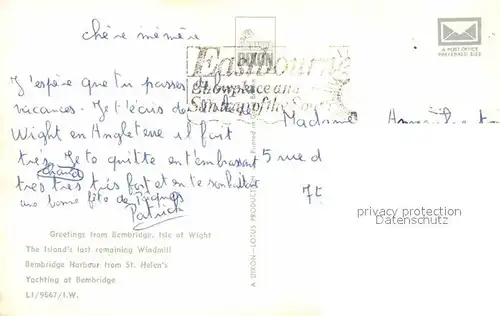 chère mémère
J'espère que tu passes de
vacances. Je t'écris de
Wight en Angleterre il fait
très chaud. Je te quitte en t'embrassant
très très très fort et en te souhaitant
une bonne fête de Pâques
Patrick
Eastbourne
Showplace and
Suntrap of the South
A POST OFFICE
PREFERRED SIZE
Madame
5 rue d
75
privacy protection
Datenschutz
Greetings from Bembridge, Isle of Wight
The Island's last remaining Windmill
Bembridge Harbour from St. Helen's
Yachting at Bembridge
L1/9667/I.W.
A DIXON-LOTUS PRODUCTION